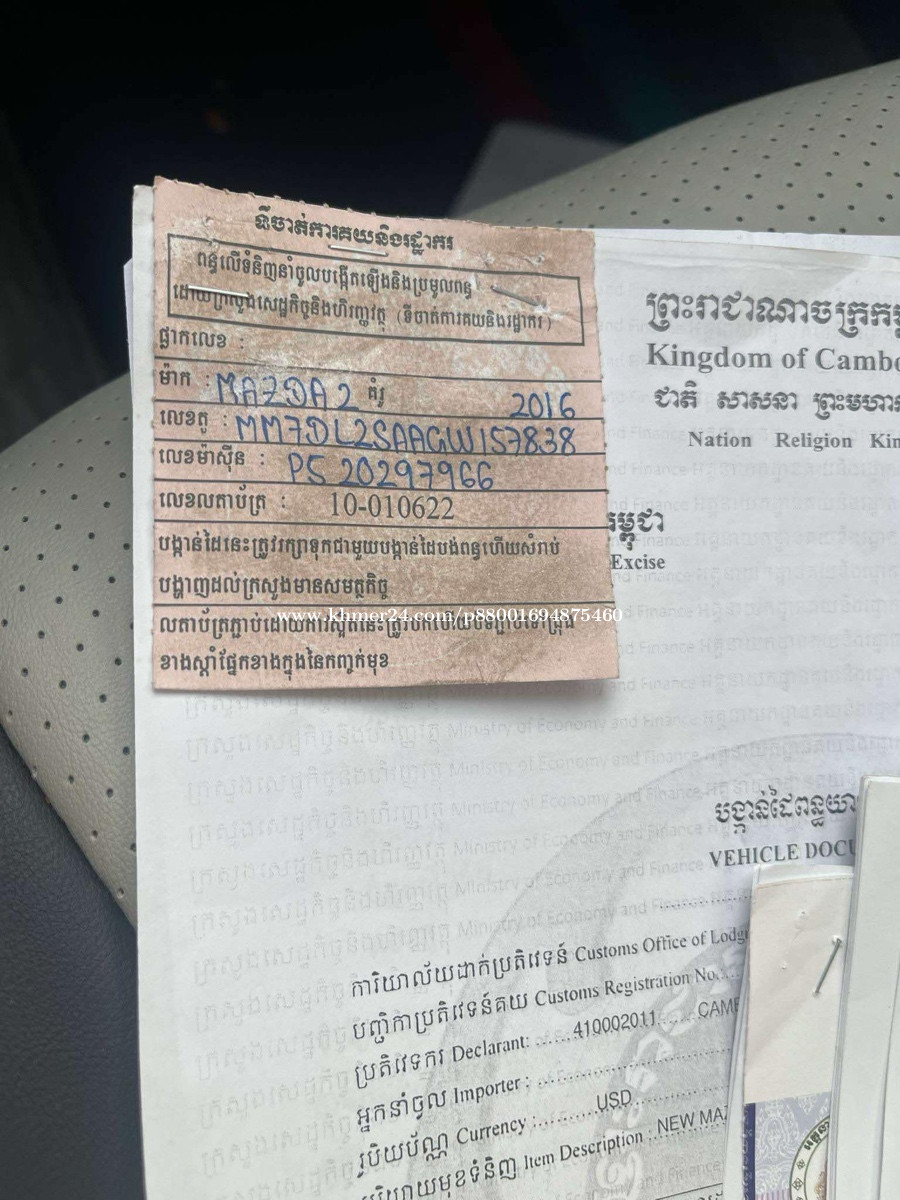 ទីចាត់ការគយនិងរដ្ឋាករ
ពន្ធលើទំនិញនាំចូលបង្កើតឡើងនិងប្រមូលពន្ធ
ដោយក្រសួងសេដ្ឋកិច្ចនិងហិរញ្ញវត្ថុ (ទីចាត់ការគយនិងរដ្ឋាករ)
ផ្លាកលេខ :
ម៉ាក : MAZDA 2 គំរូ 2016
លេខតួ : MM7DL2SAAGW157838
លេខម៉ាស៊ីន : P5 20297966
លេខលតាប័ត្រ : 10-010622
បង្កាន់ដៃនេះត្រូវរក្សាទុកជាមួយបង្កាន់ដៃបង់ពន្ធហើយសំរាប់
បង្ហាញដល់ក្រសួងមានសមត្ថកិច្ច
www.khmer24.com/p88001694875460
ខាងស្តាំផ្នែកខាងក្នុងនៃកញ្ចក់មុខ
ព្រះរាជាណាចក្រក
Kingdom of Cambo
ជាតិ សាសនា ព្រះមហា
Nation Religion Kin
កម្ពុជា
Excise
បង្កាន់ដៃពន្ធយា
VEHICLE DOCU
ការិយាល័យដាក់ប្រតិវេទន៍ Customs Office of Lodg
បញ្ជិកាប្រតិវេទន៍គយ Customs Registration No.
ប្រតិវេទករ Declarant: 410002011 CAMB
អ្នកនាំចូល Importer :
រូបិយប័ណ្ណ Currency : USD
បរិយាយមុខទំនិញ Item Description : NEW MAZ
ក្រសួងសេដ្ឋកិច្ចនិងហិរញ្ញវត្ថុ Ministry of Economy and Finance